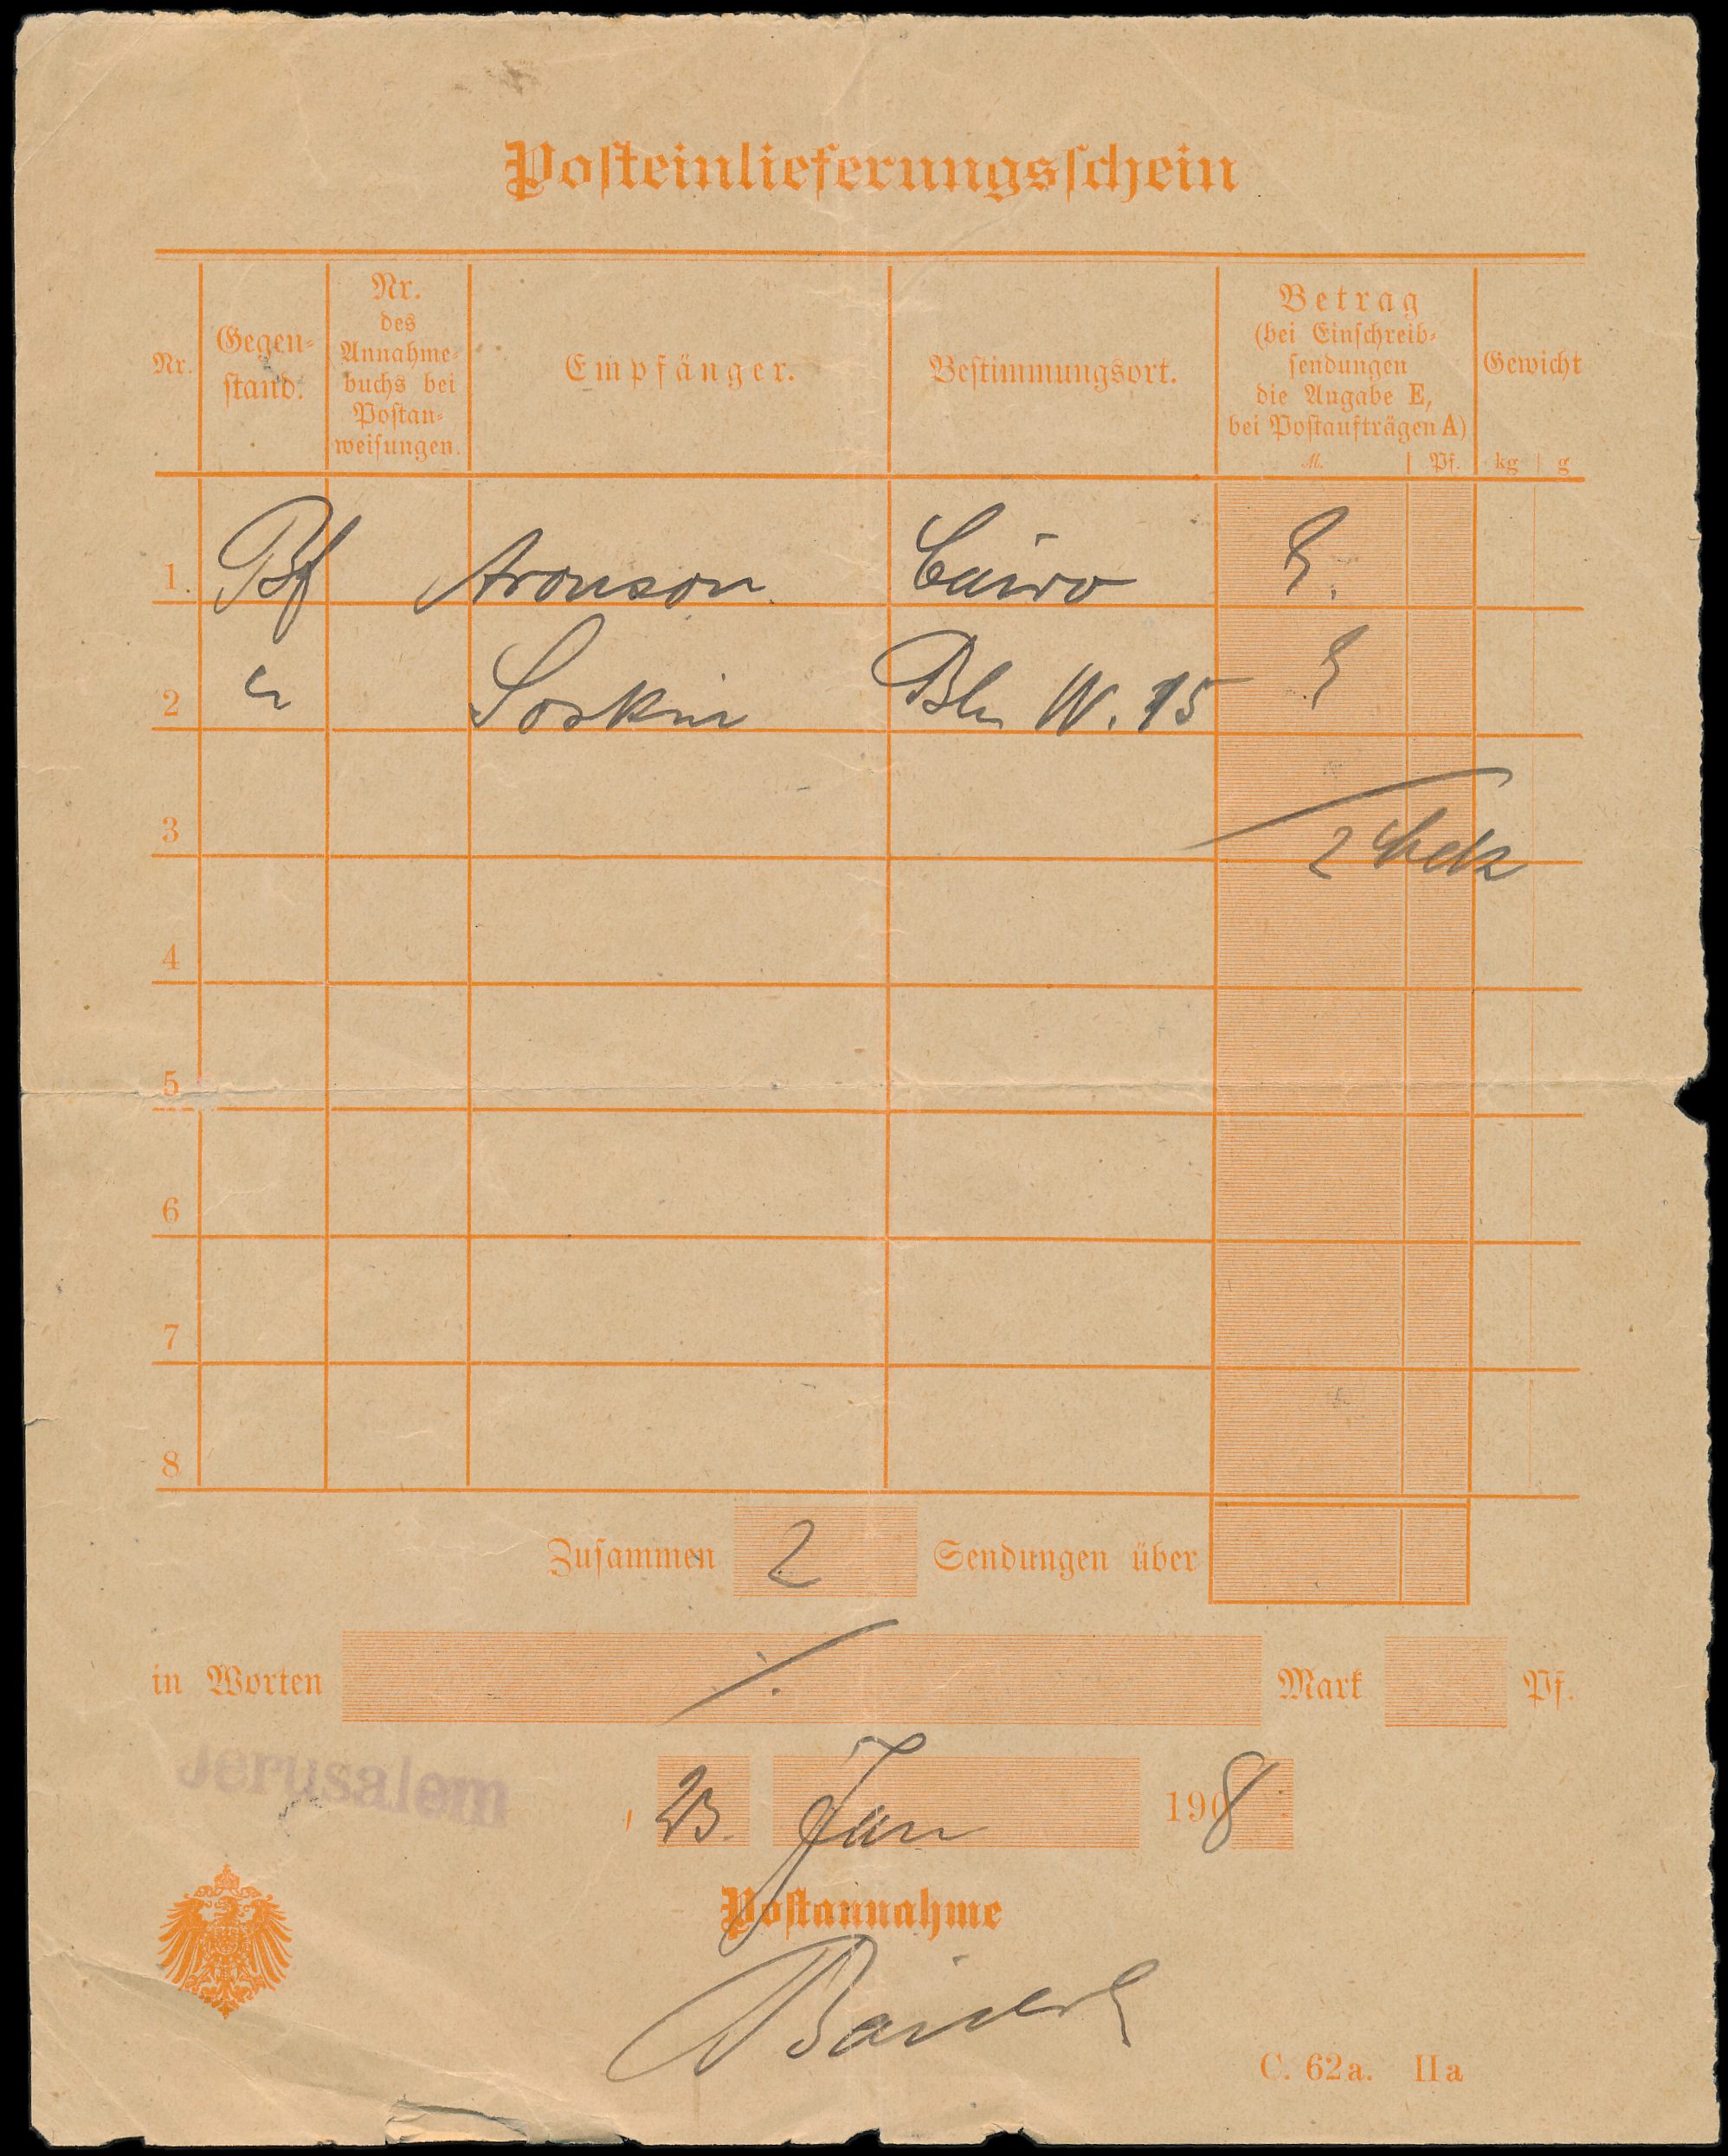 Posteinlieferungsschein
Nr.
Gegen-
stand.
Nr.
des
Annahme-
buchs bei
Postan-
weisungen.
Empfänger.
Bestimmungsort.
Betrag
(bei Einschreib-
sendungen
die Angabe E,
bei Postaufträgen A)
M. Pf.
Gewicht
kg g
1. Bf Aronson Cairo E.
2 " Soskin Bln W. 15 E
3 2
4
5
6
7
8
Zusammen 2 Sendungen über
in Worten ⁒ Mark Pf.
Jerusalem, 23. Jan 1908
Postannahme
C. 62a. IIa